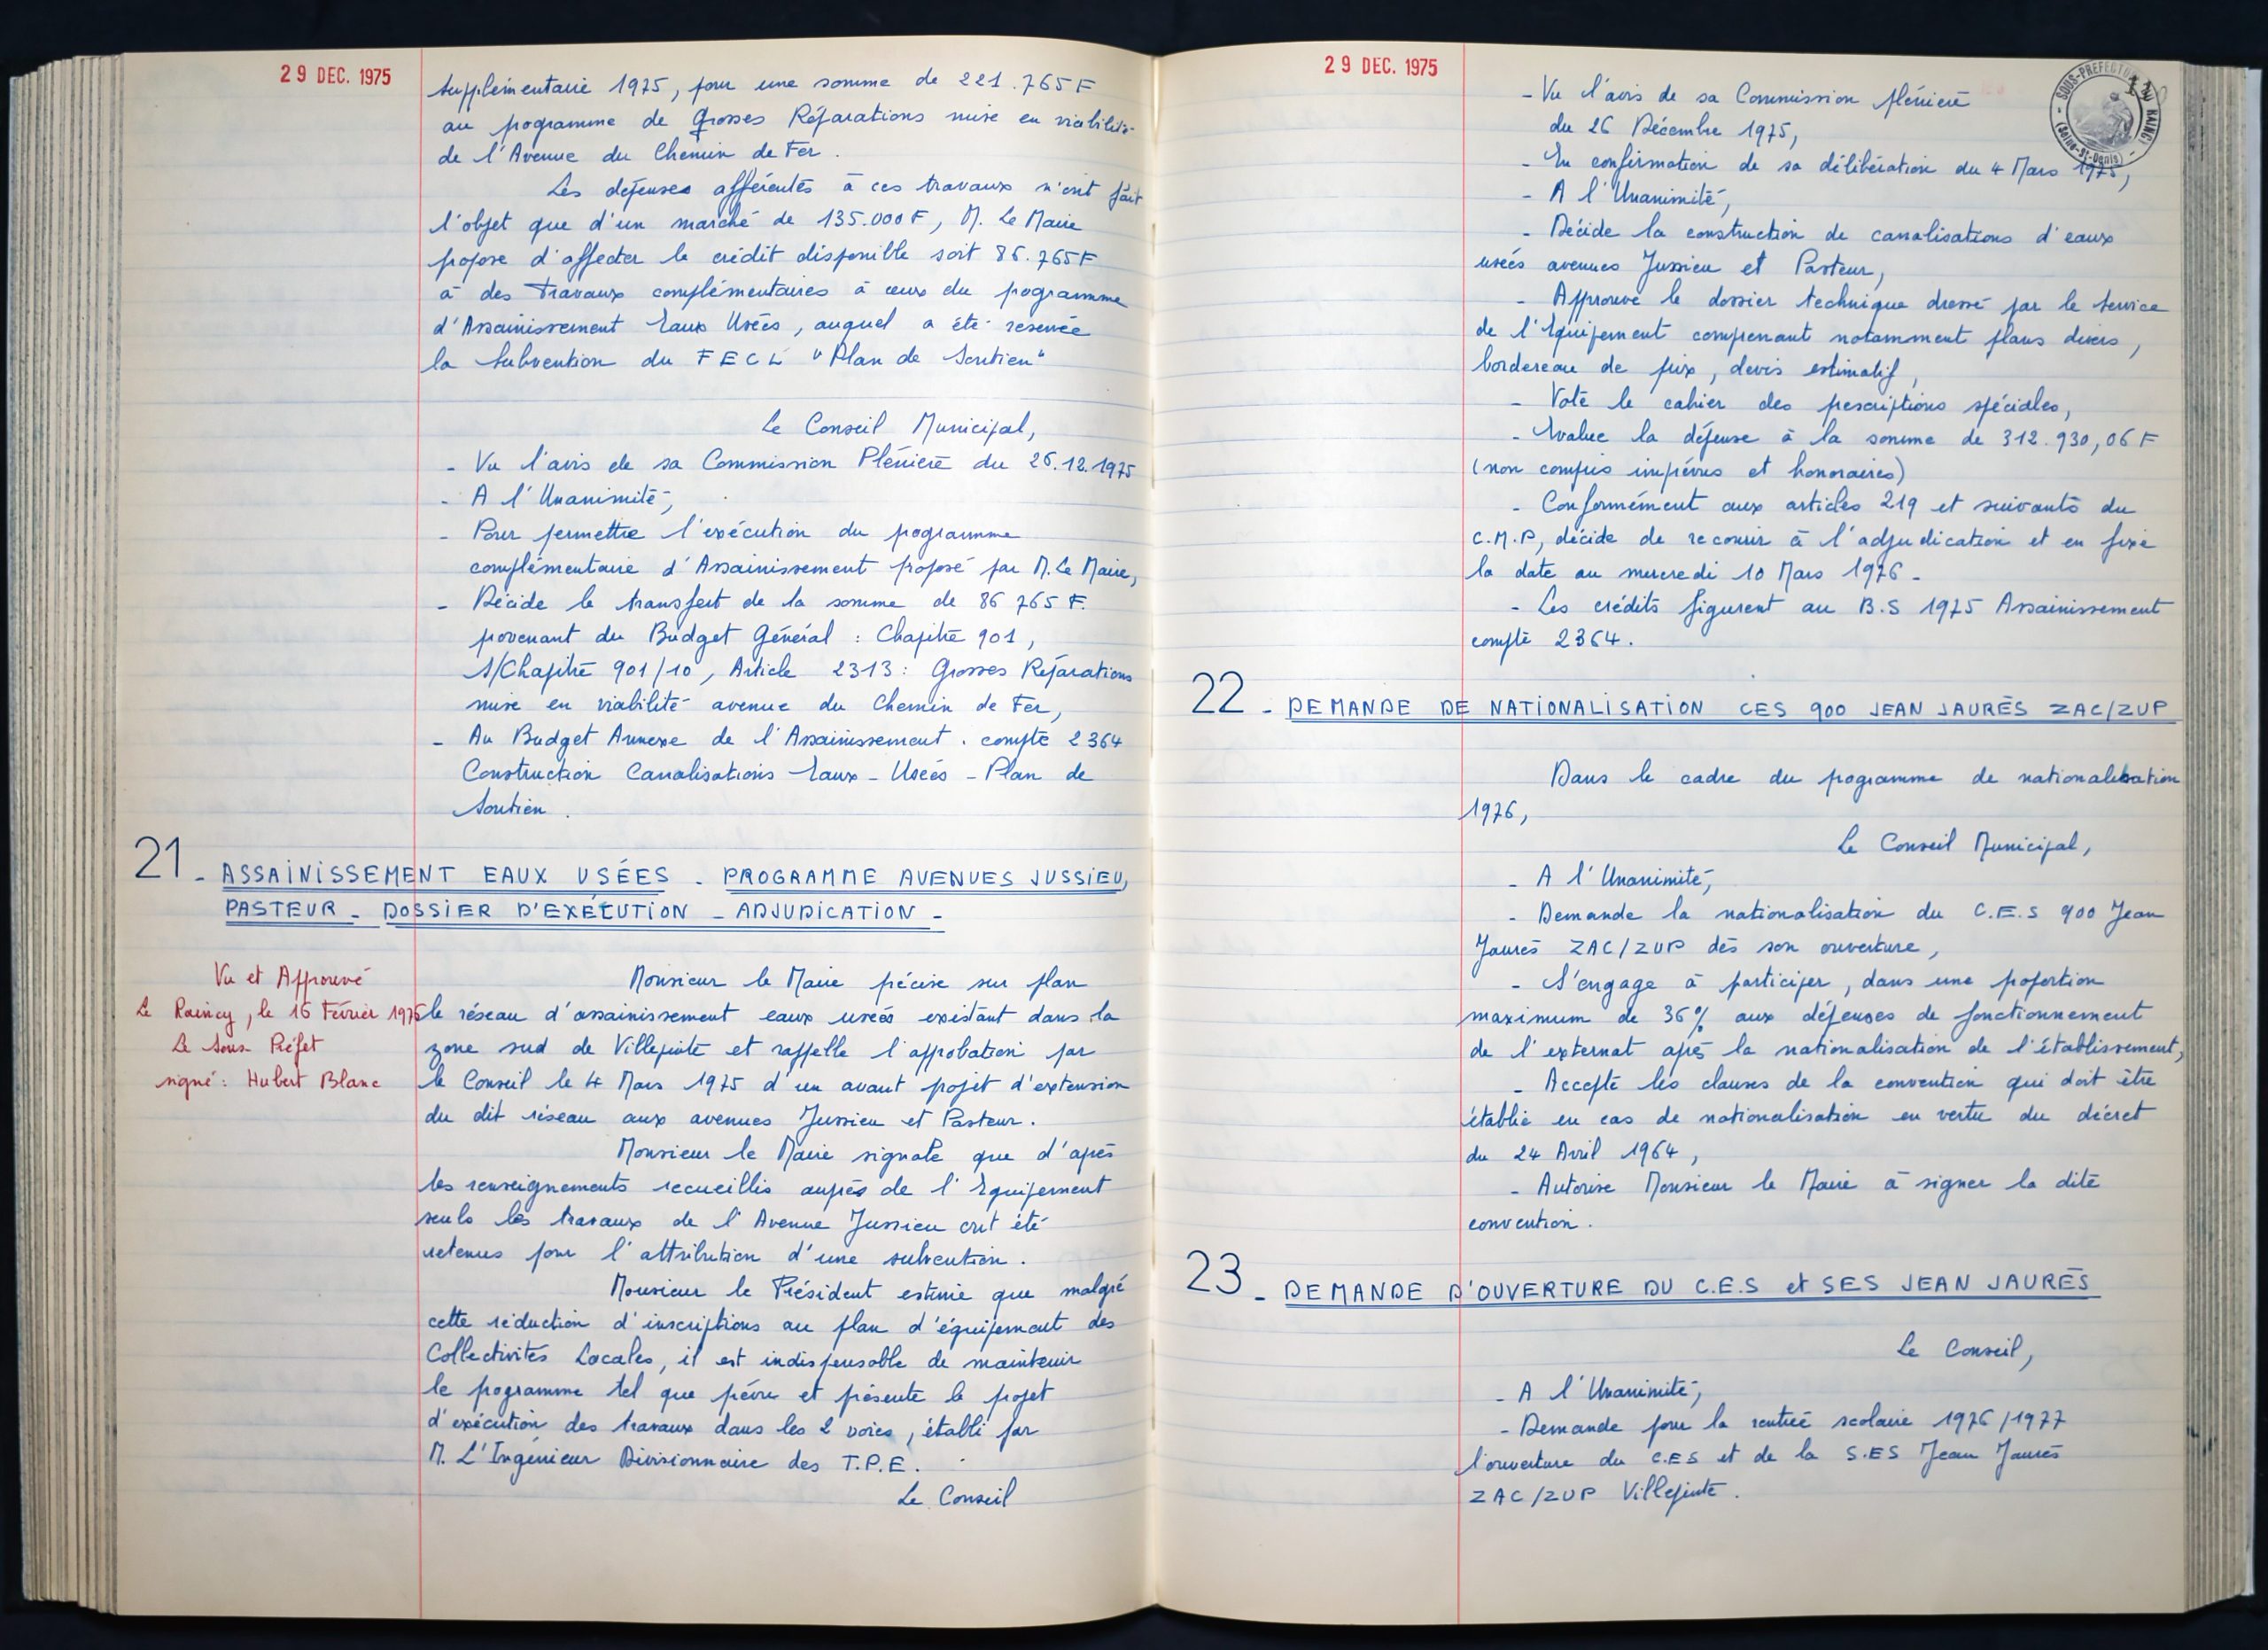 29 DEC. 1975
supplémentaire 1975, pour une somme de 221.765 F
au programme de Grosses Réparations mise en viabilité
de l'Avenue du Chemin de Fer.
Les dépenses afférentes à ces travaux n'ont fait
l'objet que d'un marché de 135.000 F, M. Le Maire
propose d'affecter le crédit disponible soit 86.765 F
à des travaux complémentaires à ceux du programme
d'Assainissement Eaux Usées, auquel a été réservée
la subvention du FECL "Plan de Soutien"
Le Conseil Municipal,
- Vu l'avis de sa Commission Plénière du 26.12.1975
- A l'Unanimité,
- Pour permettre l'exécution du programme
complémentaire d'Assainissement proposé par M. Le Maire,
- Décide le transfert de la somme de 86 765 F.
provenant du Budget Général : Chapitre 901,
S/Chapitre 901/10, Article 2313 : Grosses Réparations
mise en viabilité avenue du Chemin de Fer,
- Au Budget Annexe de l'Assainissement. compte 2364
Construction Canalisations Eaux-Usées - Plan de
Soutien.
21 - ASSAINISSEMENT EAUX USÉES - PROGRAMME AVENUES JUSSIEU,
PASTEUR - DOSSIER D'EXÉCUTION - ADJUDICATION -
Vu et Approuvé
Le Raincy, le 16 Février 1976
Le Sous-Préfet
signé : Hubert Blanc
Monsieur le Maire précise sur plan
le réseau d'assainissement eaux usées existant dans la
zone sud de Villepinte et rappelle l'approbation par
le Conseil le 4 Mars 1975 d'un avant projet d'extension
du dit réseau aux avenues Jussieu et Pasteur.
Monsieur le Maire signale que d'après
les renseignements recueillis auprès de l'Equipement
seuls les travaux de l'Avenue Jussieu ont été
retenus pour l'attribution d'une subvention.
Monsieur le Président estime que malgré
cette réduction d'inscriptions au plan d'équipement des
Collectivités Locales, il est indispensable de maintenir
le programme tel que prévu et présente le projet
d'exécution des travaux dans les 2 voies, établi par
M. L'Ingénieur Divisionnaire des T.P.E.
Le Conseil
29 DEC. 1975
SOUS-PREFECTURE DU RAINCY
(Seine-St-Denis)
- Vu l'avis de sa Commission plénière
du 26 Décembre 1975,
- En confirmation de sa délibération du 4 Mars 1975,
- A l'Unanimité,
- Décide la construction de canalisations d'eaux
usées avenues Jussieu et Pasteur,
- Approuve le dossier technique dressé par le Service
de l'Equipement comprenant notamment plans divers,
bordereau de prix, devis estimatif,
- Vote le cahier des prescriptions spéciales,
- Evalue la dépense à la somme de 312.930,06 F
(non compris imprévus et honoraires)
- Conformément aux articles 219 et suivants du
C.M.P, décide de recourir à l'adjudication et en fixe
la date au mercredi 10 Mars 1976 -
- Les crédits figurent au B.S 1975 Assainissement
compte 2364.
22 - DEMANDE DE NATIONALISATION CES 900 JEAN JAURÈS ZAC/ZUP
Dans le cadre du programme de nationalisation
1976,
Le Conseil Municipal,
- A l'Unanimité,
- Demande la nationalisation du C.E.S 900 Jean
Jaurès ZAC/ZUP dès son ouverture,
- S'engage à participer, dans une proportion
maximum de 36% aux dépenses de fonctionnement
de l'externat après la nationalisation de l'établissement,
- Accepte les clauses de la convention qui doit être
établie en cas de nationalisation en vertu du décret
du 24 Avril 1964,
- Autorise Monsieur le Maire à signer la dite
convention.
23 - DEMANDE D'OUVERTURE DU C.E.S et SES JEAN JAURÈS
Le Conseil,
- A l'Unanimité,
- Demande pour la rentrée scolaire 1976/1977
l'ouverture du C.E.S et de la S.ES Jean Jaurès
ZAC/ZUP Villepinte.